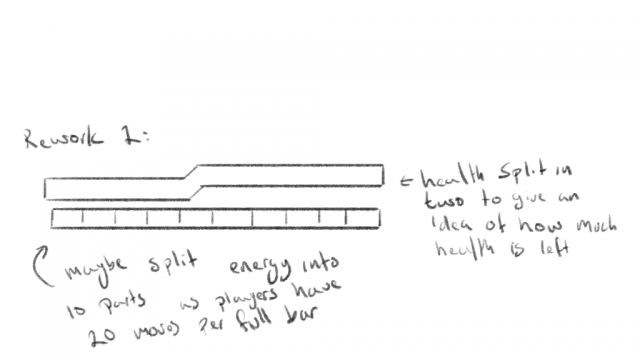 Rework 1:
← health split in
two to give an
idea of how much
health is left
maybe split energy into
10 parts as players have
20 moves per full bar